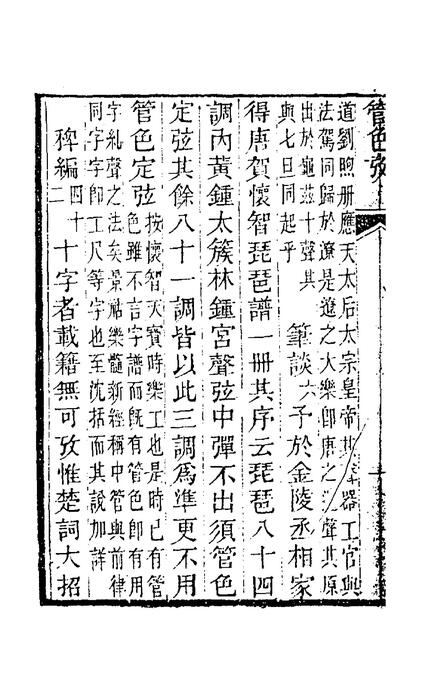 管色
道劉煦册應天太后太宗皇帝其器工官與
法駕同歸於遼是遼之大樂即唐之聲其原
出於龜茲十聲其
與七旦同起乎
筆談六予於金陵丞相家
得唐賀懷智琵琶譜一冊其序云琵琶八十四
調內黃鍾太簇林鍾宮聲弦中彈不出須管色
定弦其餘八十一調皆以此三調爲準更不用
管色定弦
按懷智天寶時樂工也是時已有管
色雖不言字譜而既有管色即有用
字糺聲之法矣景祐樂髓新經稱中管與前律
同字字即工尺等字也至沈括而其說加詳
稗編四十二十字者載籍無可攷惟楚詞大招